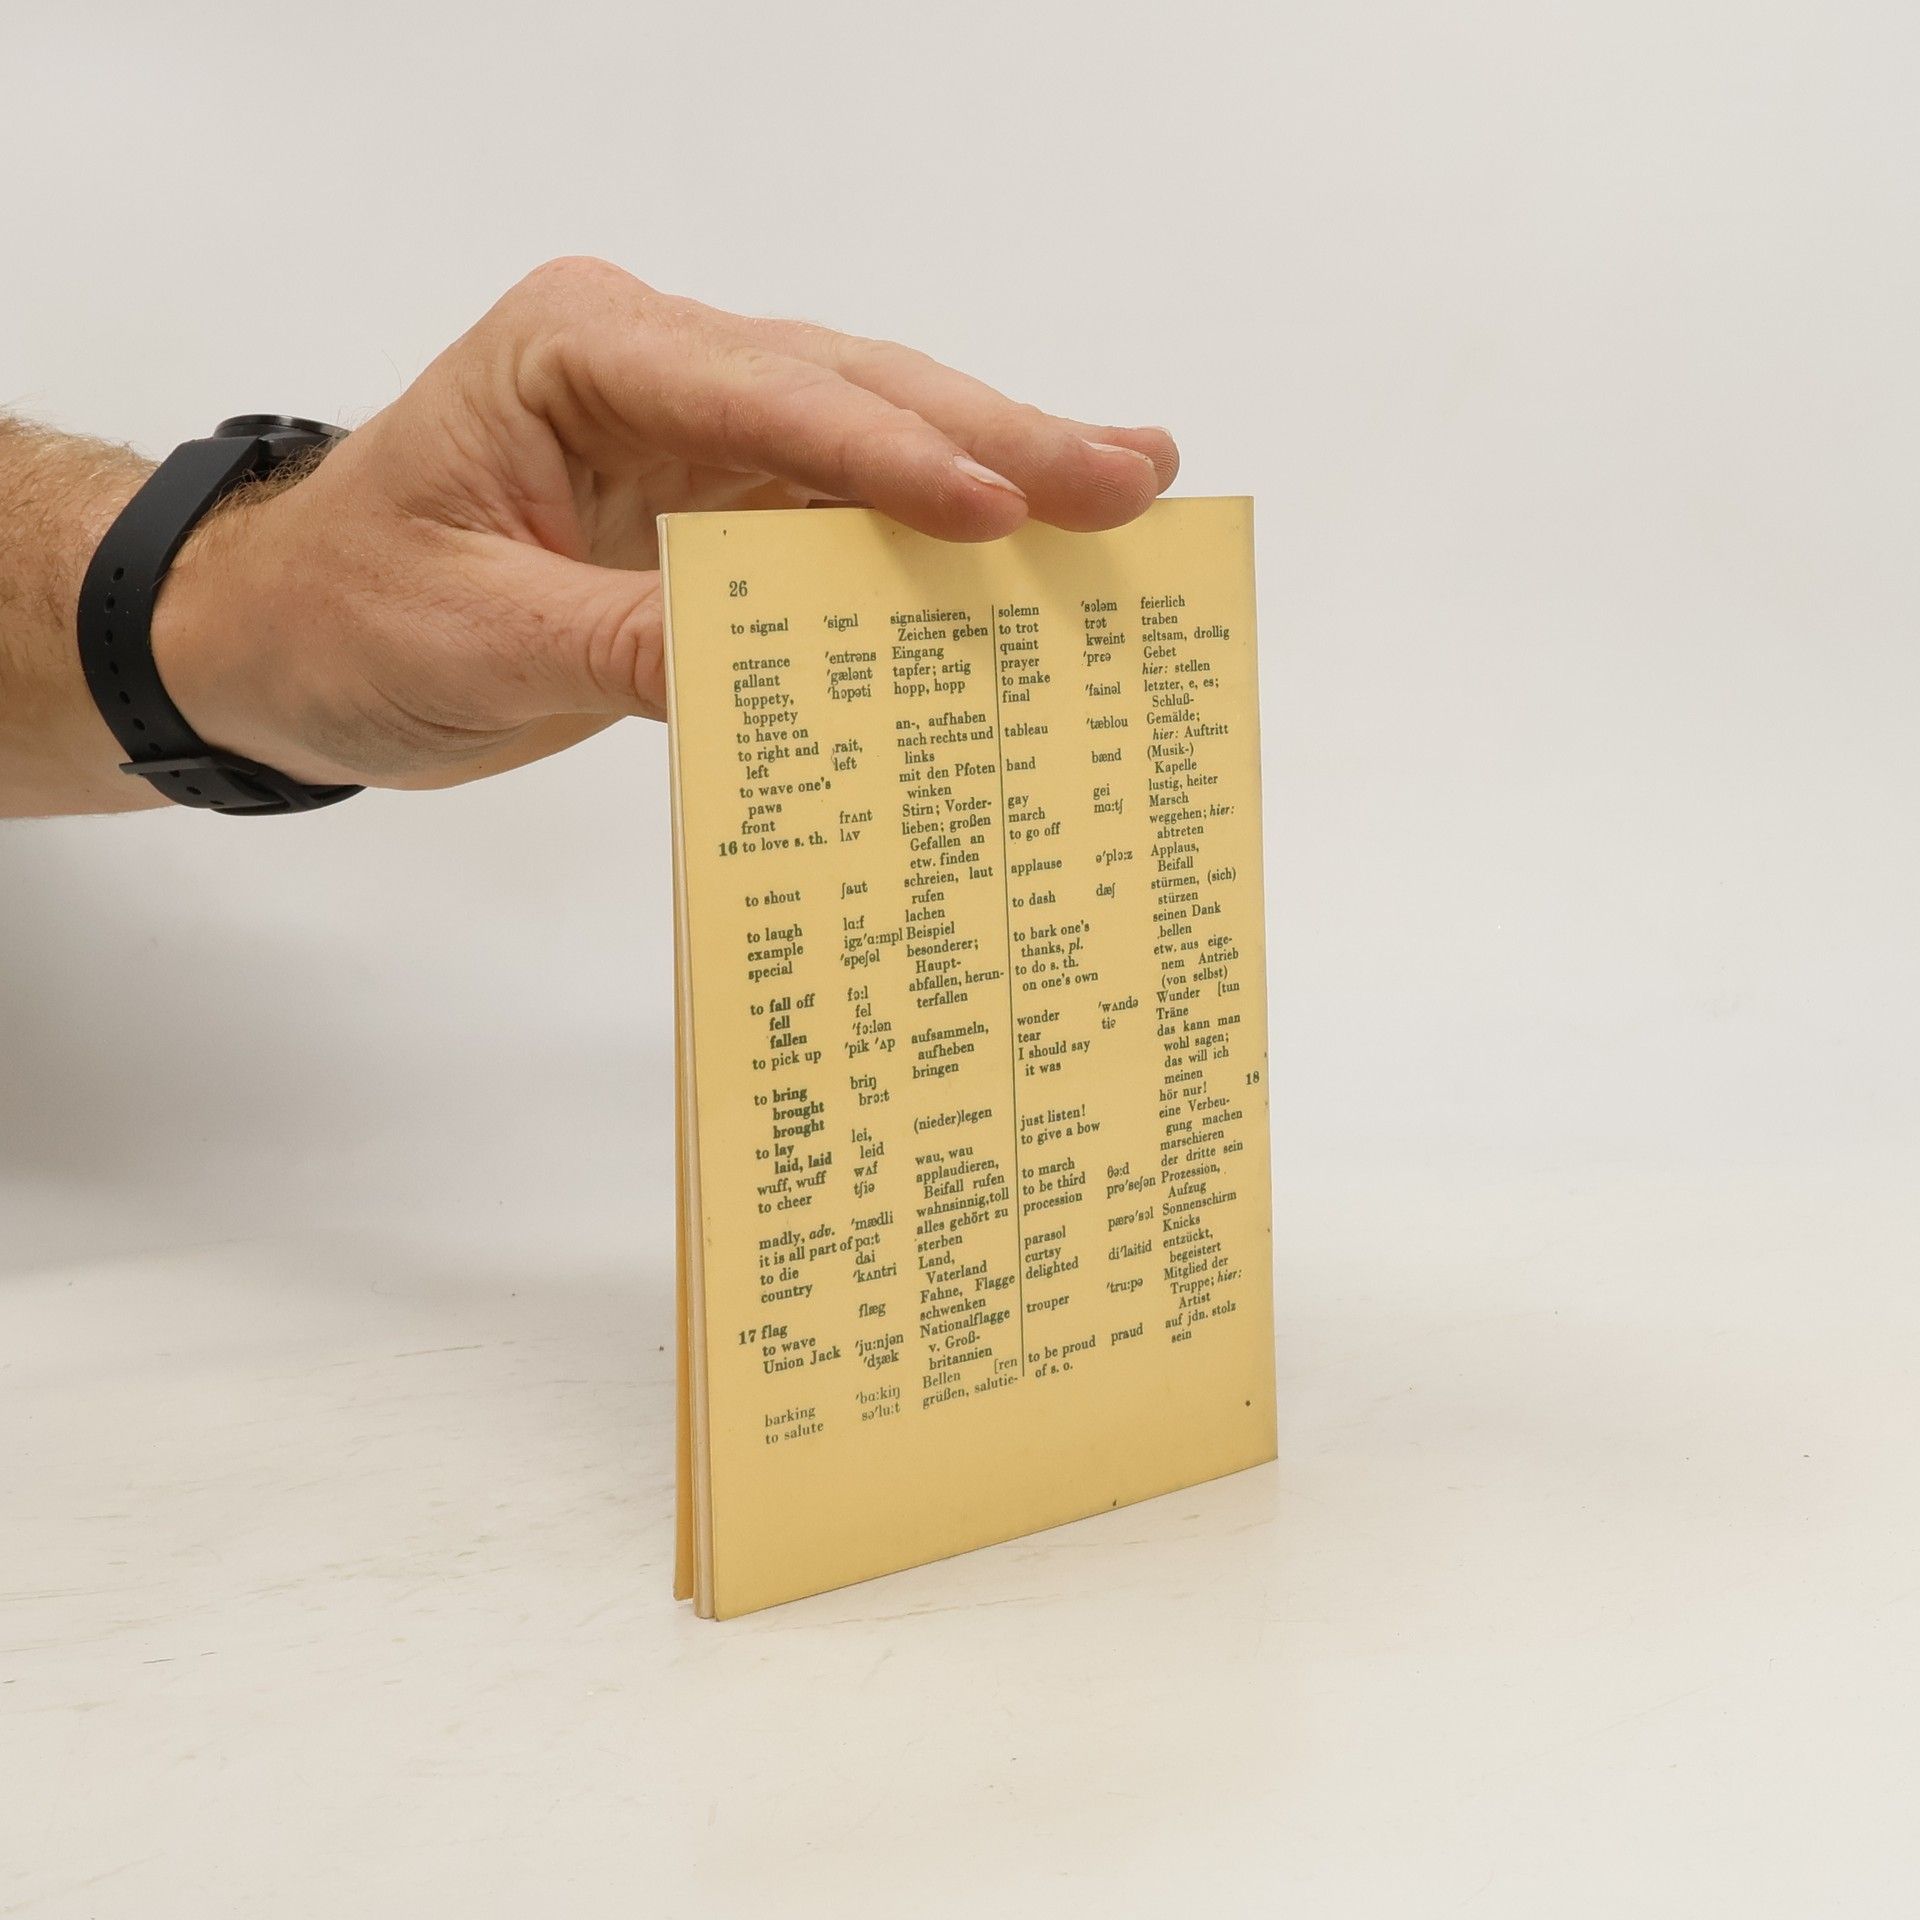 26
to signal 'signl signalisieren,
Zeichen geben
entrance 'entrəns Eingang
gallant 'gælənt tapfer; artig
hoppety, 'hɔpəti hopp, hopp
hoppety
to have on an-, aufhaben
to right and ˌrait, nach rechts und
left left links
to wave one's mit den Pfoten
paws winken
front frʌnt Stirn; Vorder-
16 to love s. th. lʌv lieben; großen
Gefallen an
etw. finden
to shout ʃaut schreien, laut
rufen
to laugh lɑ:f lachen
example igz'ɑ:mpl Beispiel
special 'speʃəl besonderer;
Haupt-
to fall off fɔ:l abfallen, herun-
fell fel terfallen
fallen 'fɔ:lən
to pick up 'pik 'ʌp aufsammeln,
aufheben
to bring briŋ bringen
brought brɔ:t
brought
to lay lei, (nieder)legen
laid, laid leid
wuff, wuff wʌf wau, wau
to cheer tʃiə applaudieren,
Beifall rufen
madly, adv. 'mædli wahnsinnig,toll
it is all part of pɑ:t alles gehört zu
to die dai sterben
country 'kʌntri Land,
Vaterland
17 flag flæg Fahne, Flagge
to wave schwenken
Union Jack 'ju:njən Nationalflagge
'dʒæk v. Groß-
britannien
barking 'bɑ:kiŋ Bellen [ren
to salute sə'lu:t grüßen, salutie-
solemn 'sɔləm feierlich
to trot trɔt traben
quaint kweint seltsam, drollig
prayer 'prɛə Gebet
to make hier: stellen
final 'fainəl letzter, e, es;
Schluß-
tableau 'tæblou Gemälde;
hier: Auftritt
band bænd (Musik-)
Kapelle
gay gei lustig, heiter
march mɑ:tʃ Marsch
to go off weggehen; hier:
abtreten
applause ə'plɔ:z Applaus,
Beifall
to dash dæʃ stürmen, (sich)
stürzen
to bark one's seinen Dank
thanks, pl. bellen
to do s. th. etw. aus eige-
on one's own nem Antrieb
(von selbst)
wonder 'wʌndə Wunder [tun
tear tiə Träne
I should say das kann man
it was wohl sagen;
das will ich
meinen
just listen! hör nur! 18
to give a bow eine Verbeu-
gung machen
to march marschieren
to be third θə:d der dritte sein
procession prə'seʃən Prozession,
Aufzug
parasol pærə'sɔl Sonnenschirm
curtsy Knicks
delighted di'laitid entzückt,
begeistert
trouper 'tru:pə Mitglied der
Truppe; hier:
Artist
to be proud praud auf jdn. stolz
of s. o. sein